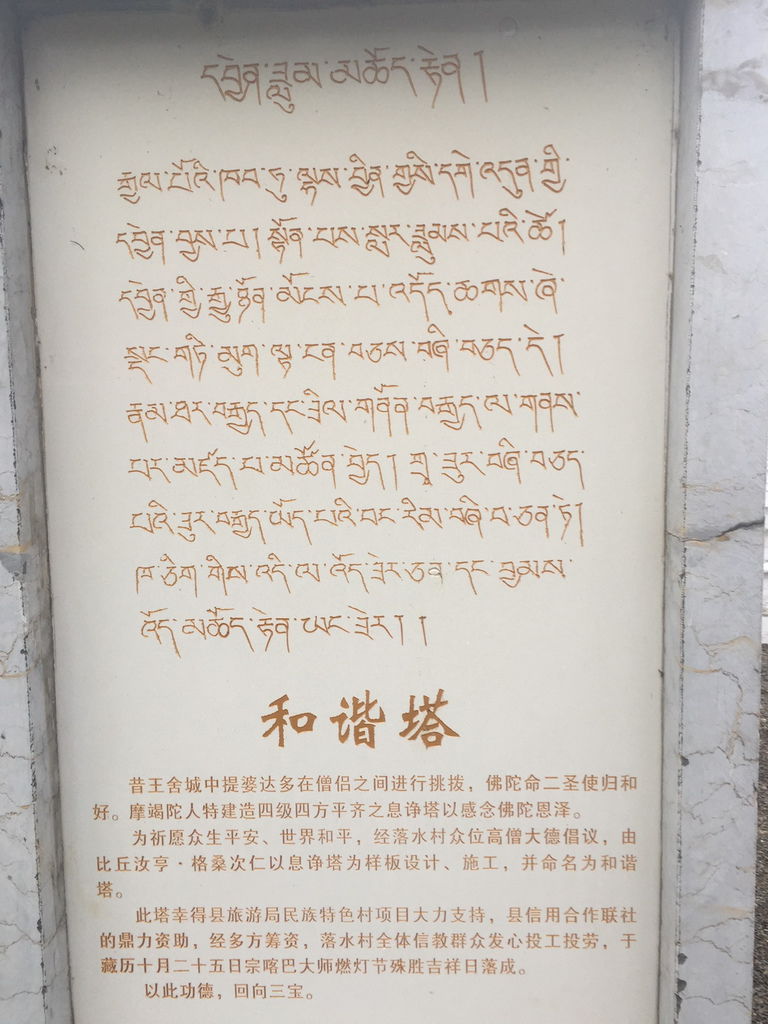 དབྱེན་ཟླུམ་མཆོད་རྟེན།
རྒྱལ་པོའི་ཁབ་ཏུ་ལྷས་བྱིན་གྱིས་དགེ་འདུན་གྱི་
དབྱེན་བྱས་པ། སྟོན་པས་སླར་ཟླུམས་པའི་ཚེ།
དབྱེན་གྱི་རྒྱུ་ཉོན་མོངས་པ་འདོད་ཆགས་ཞེ་
སྡང་གཏི་མུག་ལྟ་ངན་བཅས་བཞི་བཅད་དེ།
རྣམ་ཐར་བརྒྱད་དང་ཟིལ་གནོན་བརྒྱད་ལ་གནས་
པར་མཛད་པ་མཚོན་བྱེད། གྲུ་ཟུར་བཞི་བཅད་
པའི་ཟུར་བརྒྱད་ཡོད་པའི་བང་རིམ་བཞི་བ་ཅན་ཏེ།
ཁ་ཅིག་གིས་འདི་ལ་འོད་ཟེར་ཅན་དང་བྱམས་
འོད་མཆོད་རྟེན་ཡང་ཟེར། །
和谐塔
昔王舍城中提婆达多在僧侣之间进行挑拨，佛陀命二圣使归和
好。摩竭陀人特建造四级四方平齐之息诤塔以感念佛陀恩泽。
为祈愿众生平安、世界和平，经落水村众位高僧大德倡议，由
比丘汝亨·格桑次仁以息诤塔为样板设计、施工，并命名为和谐
塔。
此塔幸得县旅游局民族特色村项目大力支持，县信用合作联社
的鼎力资助，经多方筹资，落水村全体信教群众发心投工投劳，于
藏历十月二十五日宗喀巴大师燃灯节殊胜吉祥日落成。
以此功德，回向三宝。